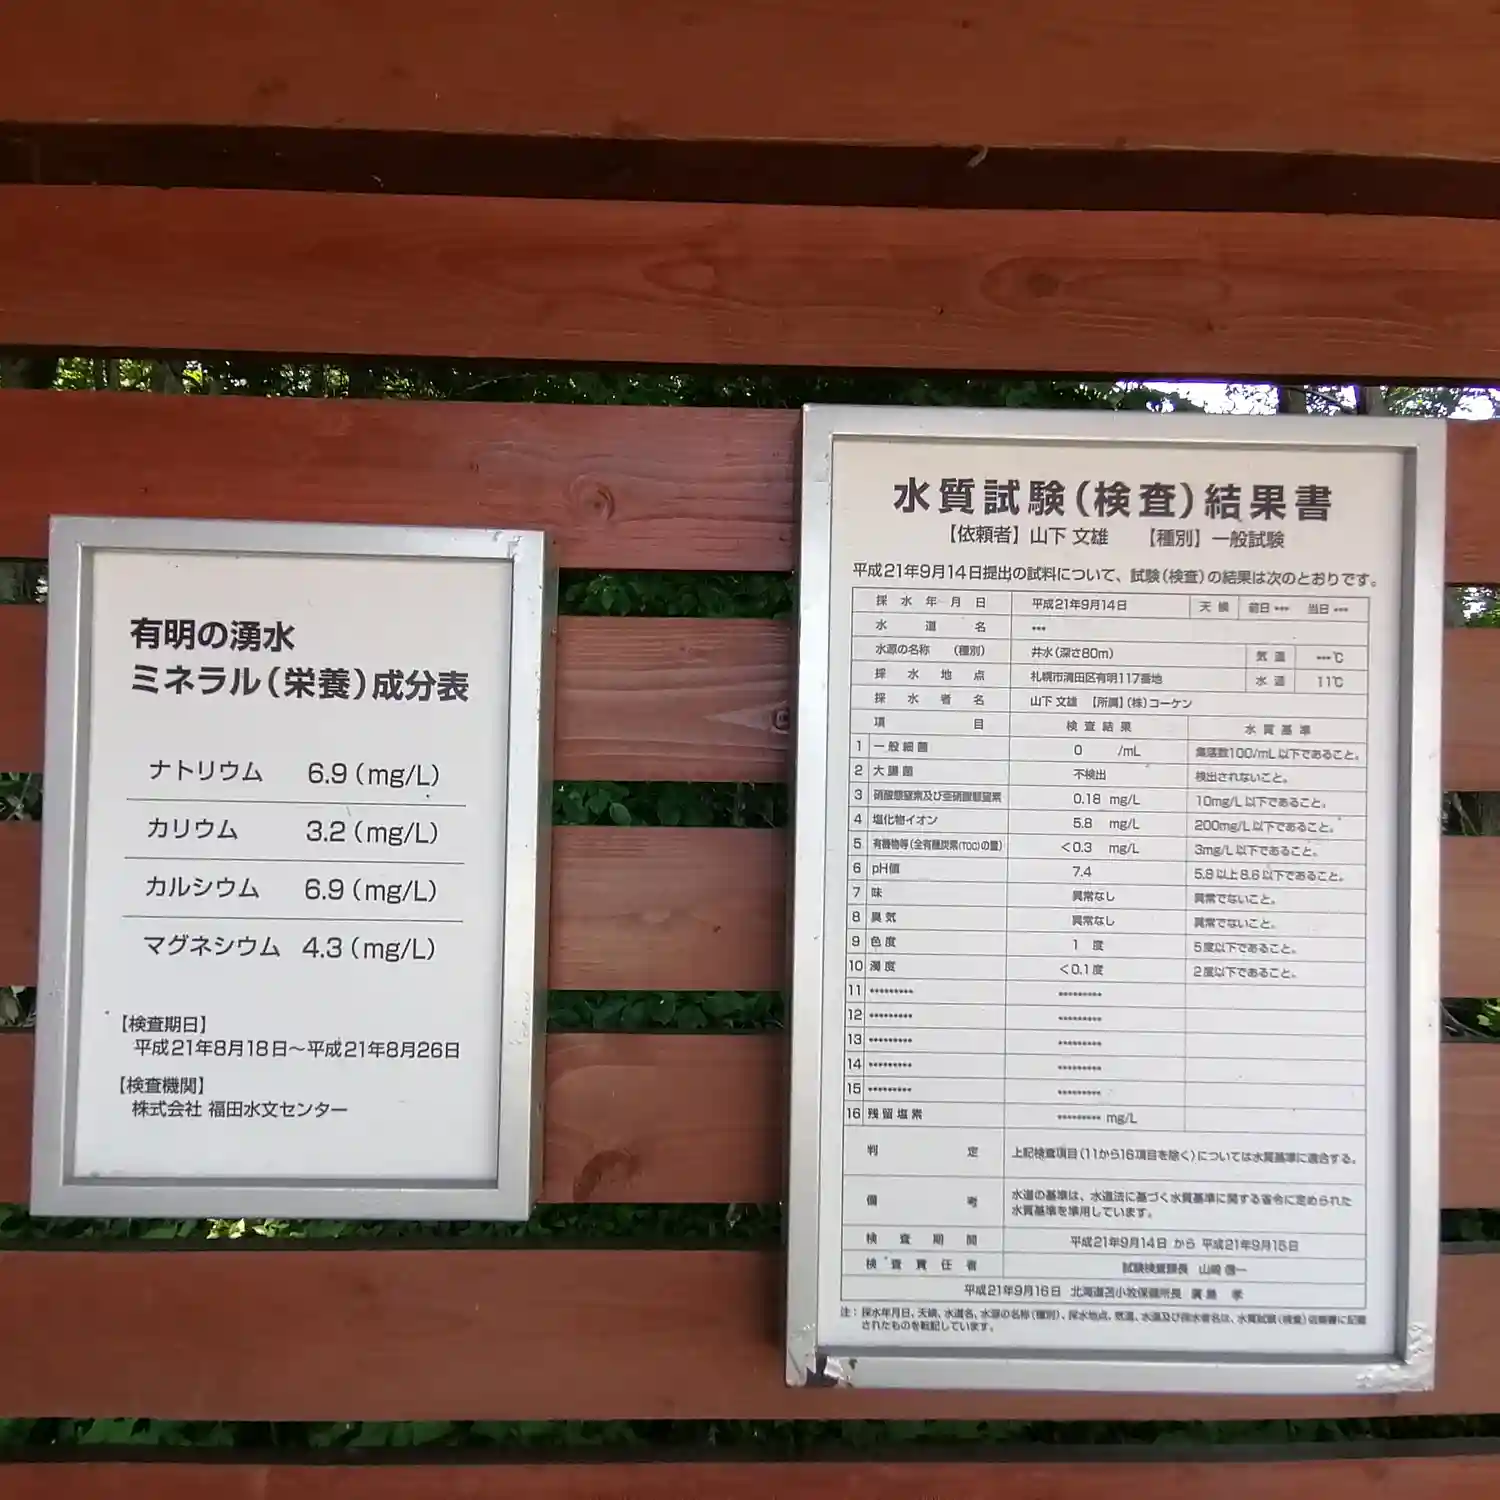 有明の湧水
ミネラル（栄養）成分表
ナトリウム 6.9（mg/L）
カリウム 3.2（mg/L）
カルシウム 6.9（mg/L）
マグネシウム 4.3（mg/L）
【検査期日】
平成21年8月18日～平成21年8月26日
【検査機関】
株式会社 福田水文センター
水質試験（検査）結果書
【依頼者】山下 文雄 【種別】一般試験
平成21年9月14日提出の試料について、試験（検査）の結果は次のとおりです。
採水年月日 平成21年9月14日 天候 前日 *** 当日 ***
水道名 ***
水源の名称 （種別） 井水（深さ80m） 気温 ***℃
採水地点 札幌市清田区有明117番地 水温 11℃
採水者名 山下 文雄 【所属】（株）コーケン
項目 検査結果 水質基準
1 一般細菌 0 /mL 集落数100/mL以下であること。
2 大腸菌 不検出 検出されないこと。
3 硝酸態窒素及び亜硝酸態窒素 0.18 mg/L 10mg/L以下であること。
4 塩化物イオン 5.8 mg/L 200mg/L以下であること。
5 有機物等（全有機炭素（TOC）の量） ＜0.3 mg/L 3mg/L以下であること。
6 pH値 7.4 5.8以上8.6以下であること。
7 味 異常なし 異常でないこと。
8 臭気 異常なし 異常でないこと。
9 色度 1 度 5度以下であること。
10 濁度 ＜0.1度 2度以下であること。
11 ********* *********
12 ********* *********
13 ********* *********
14 ********* *********
15 ********* *********
16 残留塩素 ********* mg/L
判定 上記検査項目（11から16項目を除く）については水質基準に適合する。
備考 水道の基準は、水道法に基づく水質基準に関する省令に定められた
水質基準を準用しています。
検査期間 平成21年9月14日 から 平成21年9月15日
検査責任者 試験検査課長 山崎 信一
平成21年9月16日 北海道苫小牧保健所長 廣島 孝
注：採水年月日、天候、水道名、水源の名称（種別）、採水地点、気温、水温及び採水者名は、水質試験（検査）依頼書に記載
されたものを転記しています。